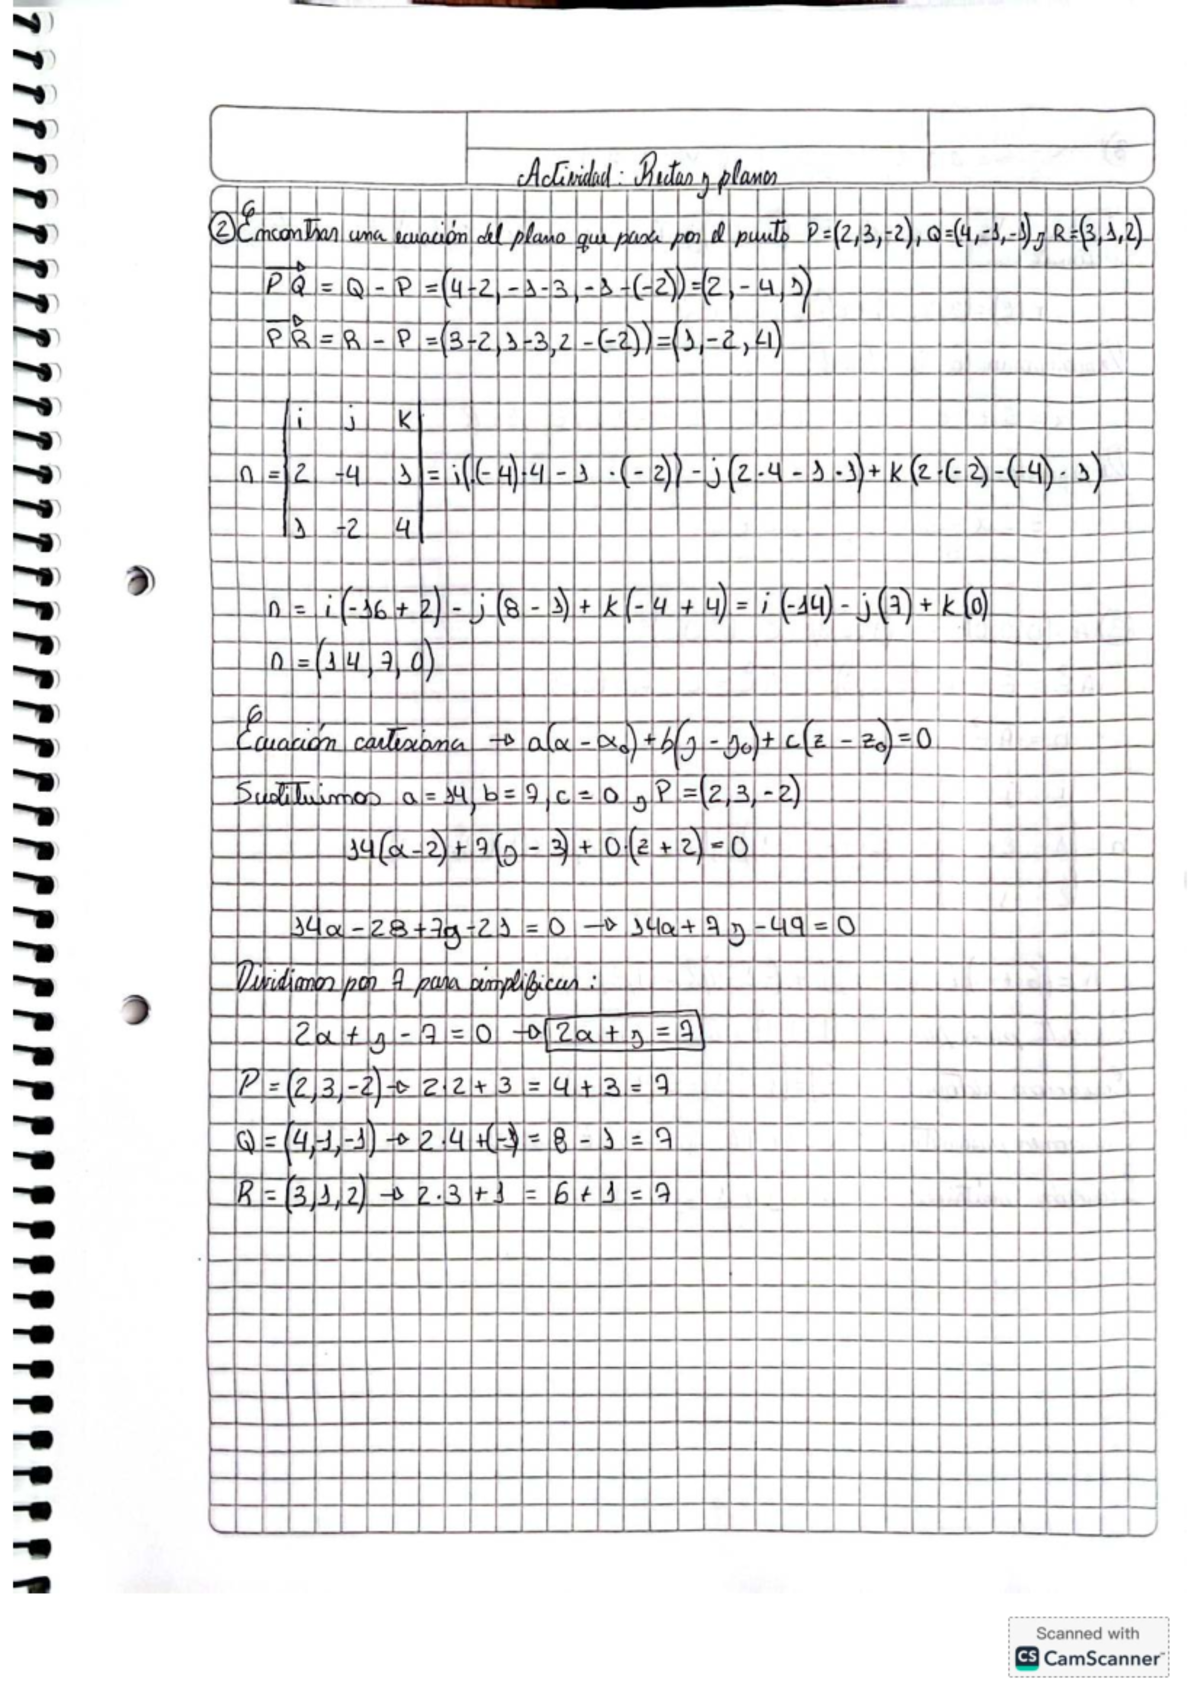 Actividad: Rectas y planos
② Encontrar una ecuación del plano que pasa por el punto P=(2,3,-2), Q=(4,-1,-1) y R=(3,1,2)
PQ = Q - P = (4-2, -1-3, -1-(-2)) = (2, -4, 1)
PR = R - P = (3-2, 1-3, 2-(-2)) = (1, -2, 4)
i j k
n = 2 -4 1 = i((-4)·4 - 1 ·(-2)) - j(2·4 - 1·1) + k(2·(-2) - (-4)·1)
1 -2 4
n = i(-16 + 2) - j(8 - 1) + k(-4 + 4) = i(-14) - j(7) + k(0)
n = (14, 7, 0)
Ecuación cartesiana → a(x - x₀) + b(y - y₀) + c(z - z₀) = 0
Sustituimos a = 14, b = 7, c = 0 y P = (2, 3, -2)
14(x - 2) + 7(y - 3) + 0·(z + 2) = 0
14x - 28 + 7y - 21 = 0 → 14x + 7y - 49 = 0
Dividimos por 7 para simplificar:
2x + y - 7 = 0 → 2x + y = 7
P = (2, 3, -2) → 2·2 + 3 = 4 + 3 = 7
Q = (4, -1, -1) → 2·4 + (-1) = 8 - 1 = 7
R = (3, 1, 2) → 2·3 + 1 = 6 + 1 = 7
Scanned with
CS CamScanner